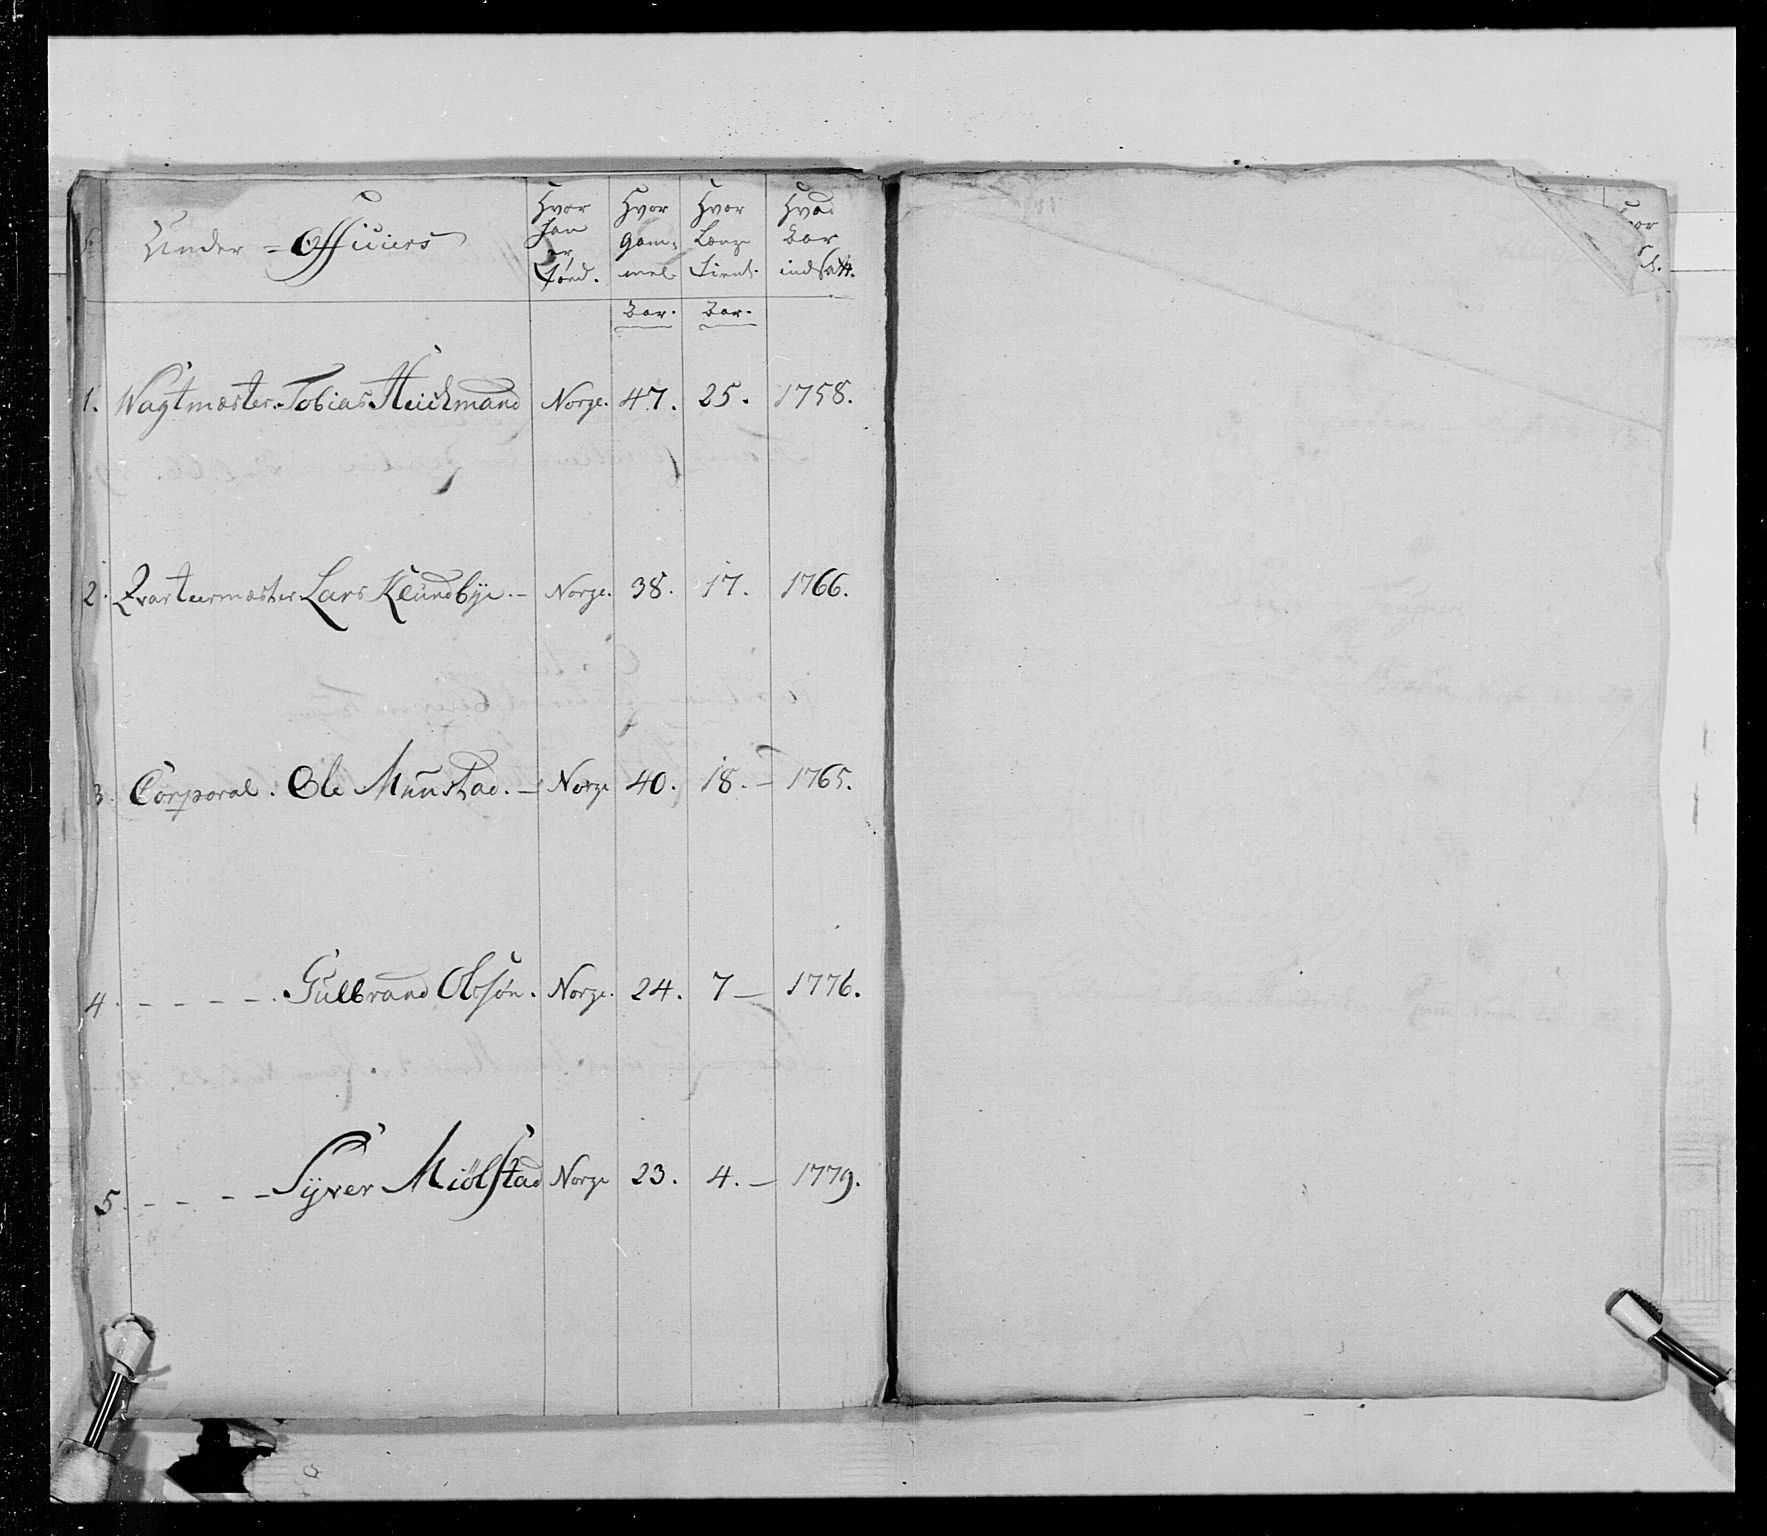 No Under-Officiers Hvor Han er Fød. Hvor Gam= mel Hvor Længe Tient. Hvad Aar indsatt.
Aar. Aar.
1. Wagtmæster. Tobias Heickmand Norge. 47. 25. 1758.
2. Qvarteermæster Lars Klundbye. - Norge. 38. 17. 1766.
3. Corporal. Ole Munstad. - Norge 40. 18. - 1765.
4. - - - - - Gulbrand Olsøn. Norge. 24. 7 - 1776.
5. - - - - Syver Miölstad Norge 23. 4. - 1779.